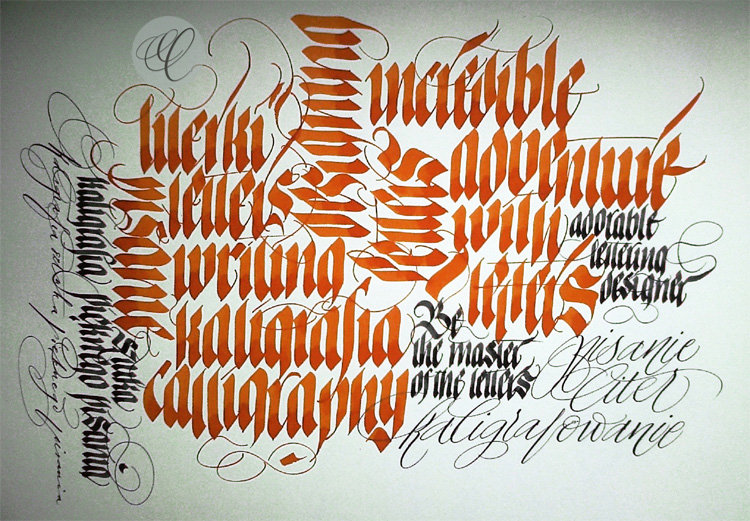 incredible
adventure
with
letters
literki
letters
writing
kaligrafia
calligraphy
pisanie
adorable
lettering
designer
Be
the master
of the letters
pisanie
letter
kaligrafowanie
kaligrafia
sztuka
pięknego pisania